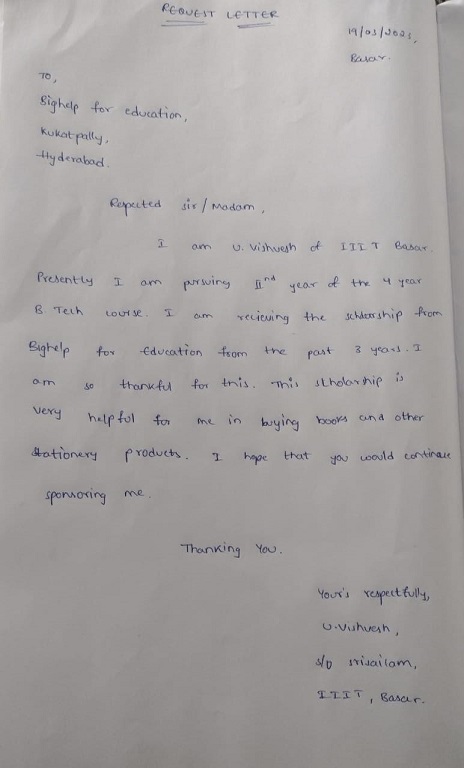 REQUEST LETTER
19/03/2023,
Basar.
TO,
Bighelp for education,
Kukatpally,
Hyderabad.
Respected sir/Madam,
I am U. Vishvesh of IIIT Basar.
Presently I am pursuing IInd year of the 4 year
B.Tech course. I am recieving the scholarship from
Bighelp for Education from the past 3 years. I
am so thankful for this. This scholarship is
very helpful for me in buying books and other
stationery products. I hope that you would continue
sponsoring me.
Thanking You.
Your's respectfully,
U.Vishvesh,
s/o srisailam,
IIIT, Basar.